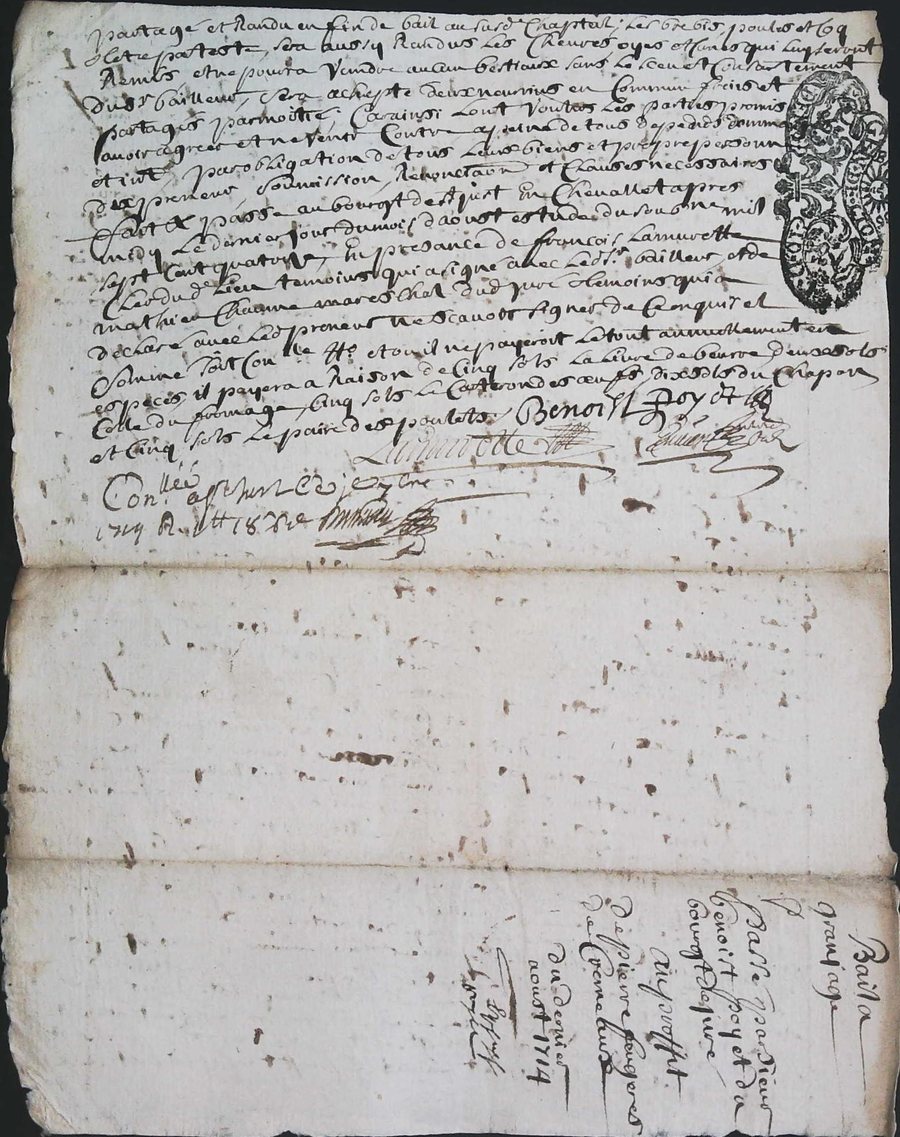 partage et Randu en fin de bail au susd Chaptail; les brebis, poules et Coq
sera aussy Randus les Chevres oyes et qui luy seront
Remis et ne poura Vendre aucun bestiaux sans le sceu et Consantement
dud sr bailleur, sera achepté deux nourrins en Commun frais et
partagés par moitié; Car ainsi l'ont Voulus les parties promis
avoir agreé et ne Venir Contre a peine de tous depends domma
et int par obligation de tous leurs biens et propre personne
dud preneur soumission, Renonciaon et Clauses necessaires
fait & passé au bourgt de st just en Chevallet apres
midy le dernier jour du mois d'aoust estude du soubné mil
sept Cent quatorze, En presance de françois Lamurette
Clerc dud lieu temoins qui a signé avec led sr bailleur, et de
mathieu Chaume mareschal dud jure temoins qui a
declaré avec led preneur ne scavoir signer de ce enquis et
somme soit Con lle Ho et ou il ne payeroit le tout annuellement en
especes il payera a Raison de Cinq sols la livre de beurre, deux sols
Celle du fromage, Cinq sols le Carteron des œufs, dix sols du Chapon
et Cinq sols le paire des poulets. Benoist Poyet
Lamurette
Conllé a st Just
1714 R
Bail a
granjage
Passé par sieur
benoist poyet du
bourgt de jure
au proffit
de pierre fougeres
de Cremeaux
du dernier
aoust 1714